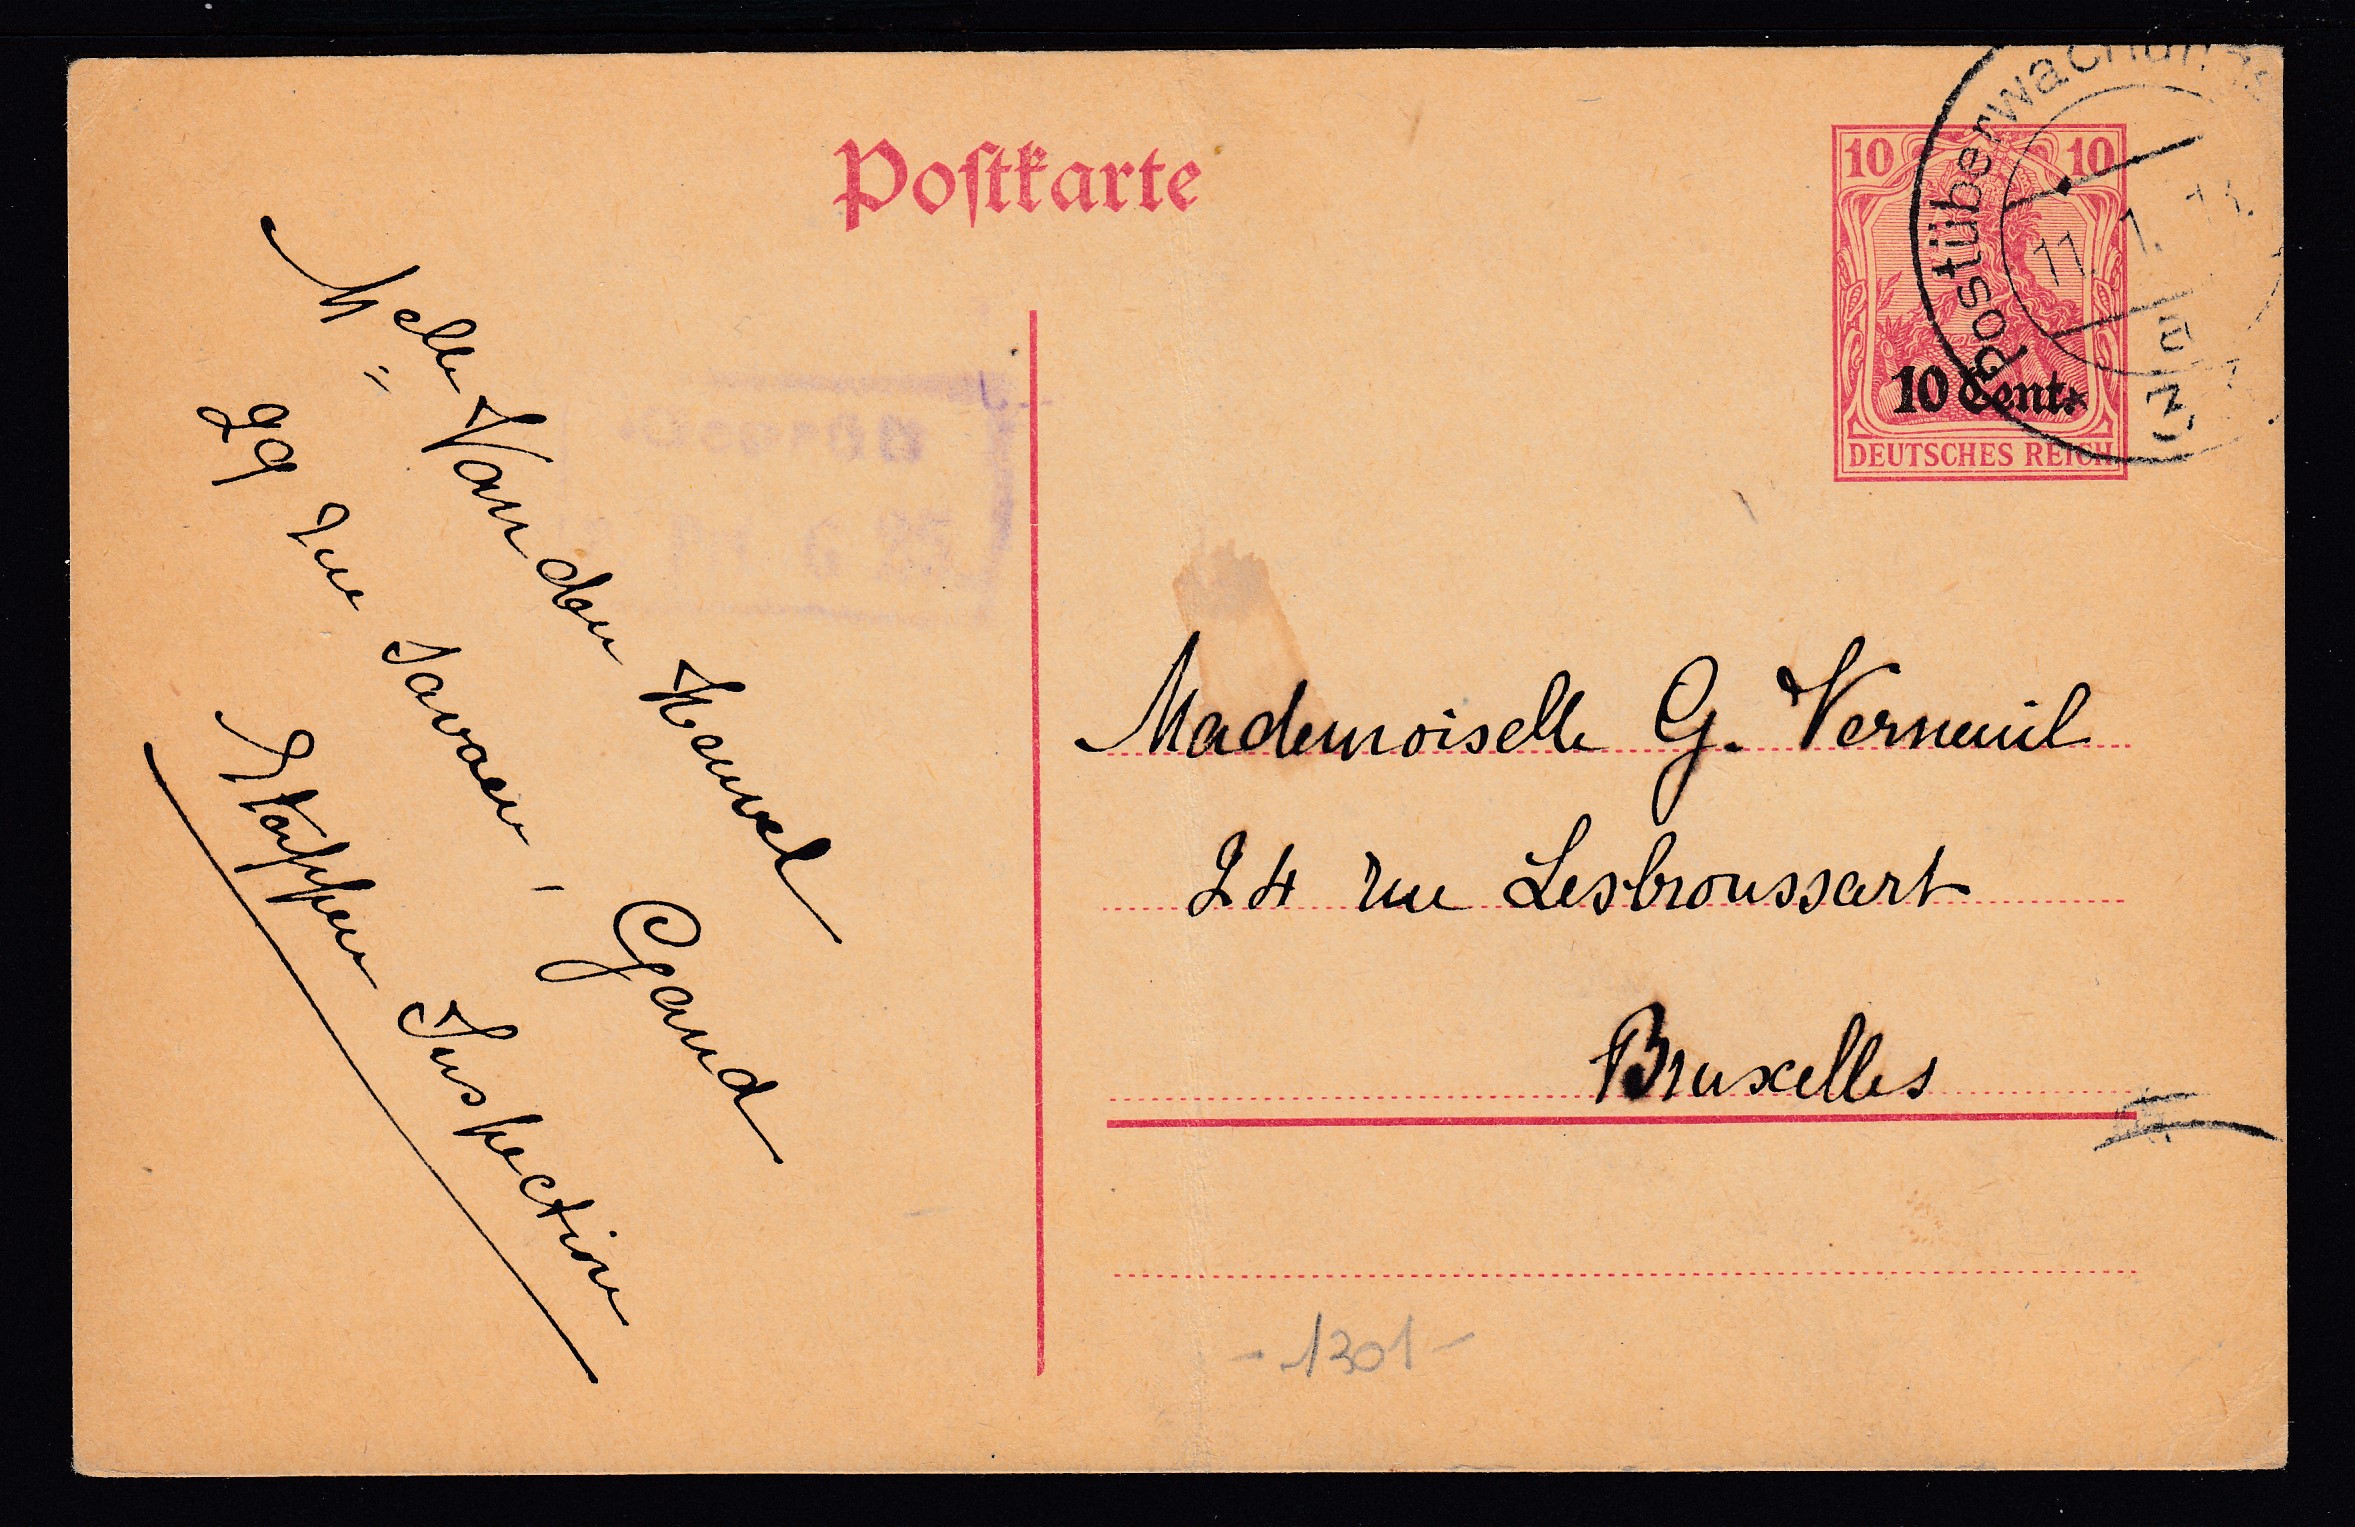 Postkarte
10 10
10 Cent.
DEUTSCHES REICH
Postüberwachung
11. 1.
Melle Van den Heuvel
29 rue Savaen, Gand
Etappen Inspection
Mademoiselle G. Verneuil
24 rue Lesbroussart
Bruxelles
- 1301 -